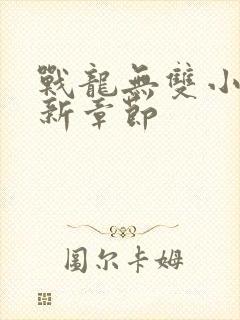 戰龍無雙小
新章節
圖尔卡姆